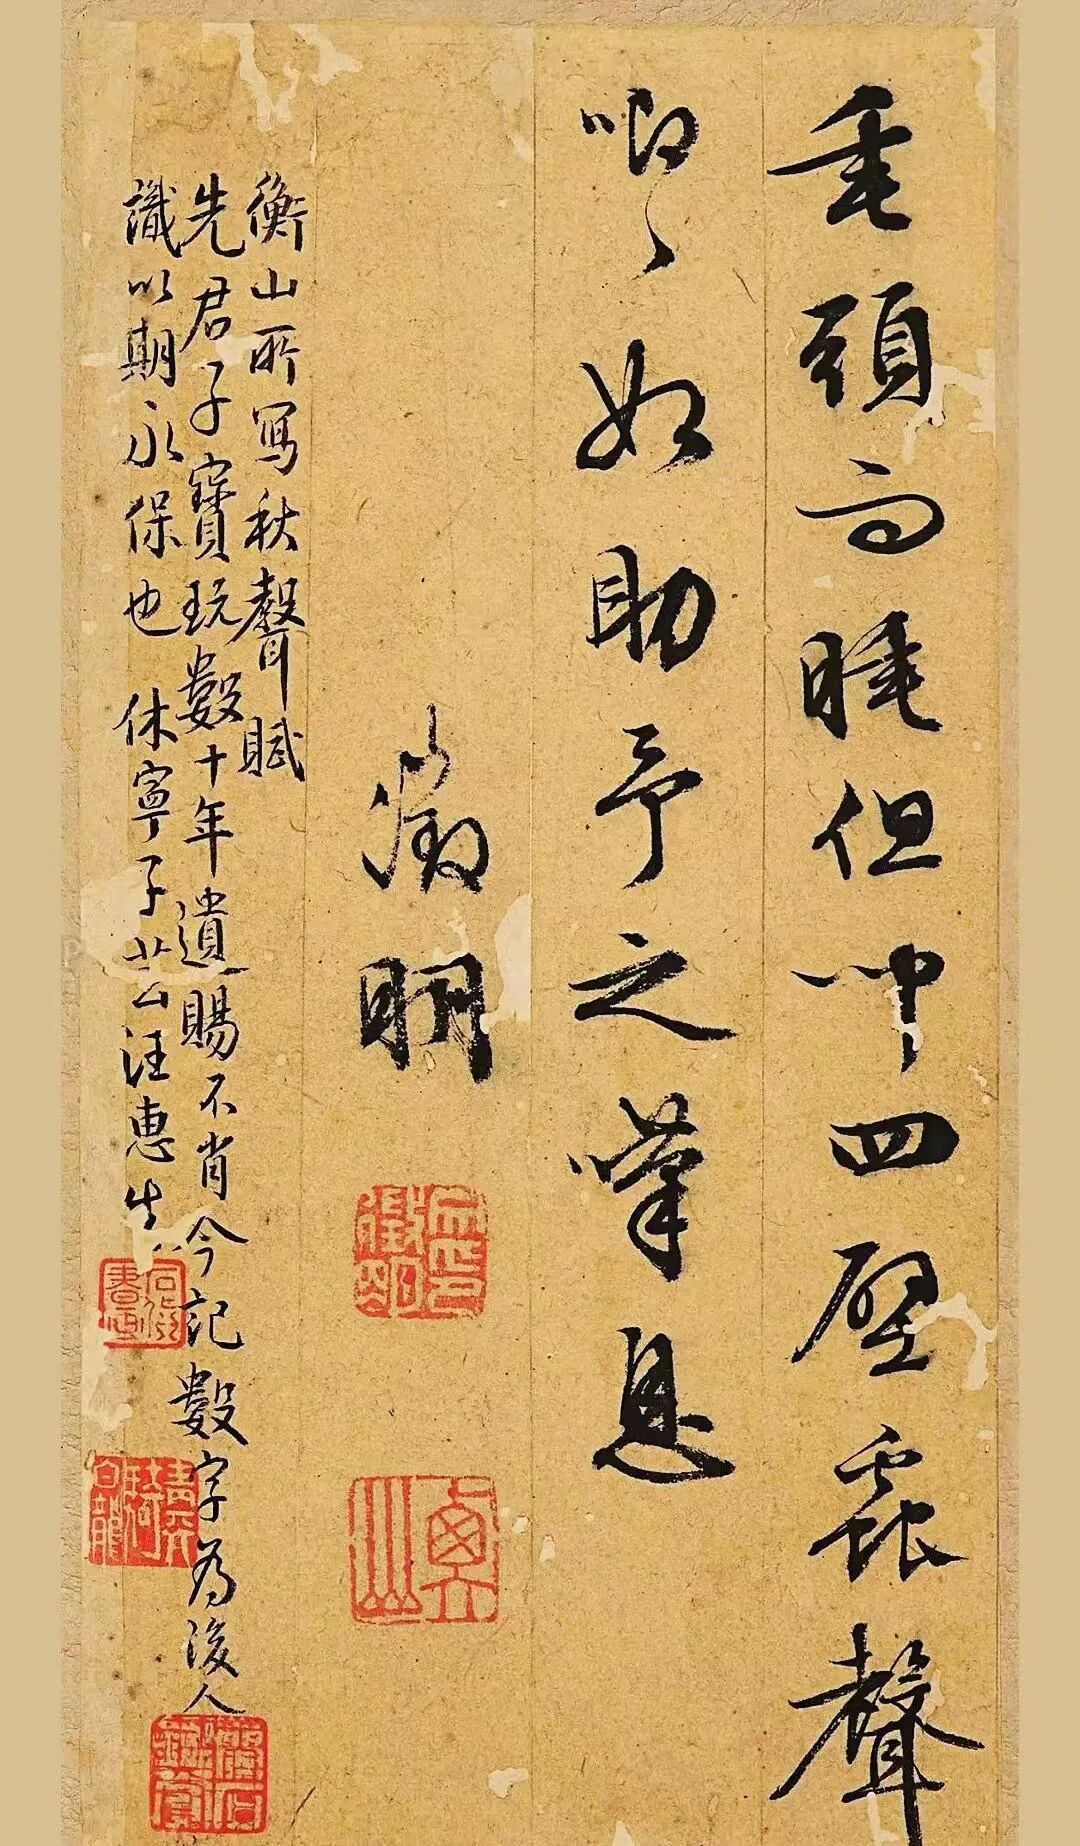 垂頭而睡但聞四壁蟲聲
唧〻如助予之嘆息
徵明
衡山所寫秋聲賦
先君子寶玩數十年遺賜不肖今記數字為後人
識以期永保也 休寧子芸汪惠生
衡山